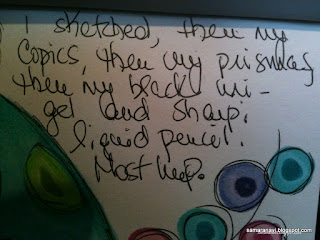 I sketched, then my
Copics, then my prismas,
then my black uni-
gel and sharpi
liquid pencil.
Most imp.
samaranayi.blogspot.com